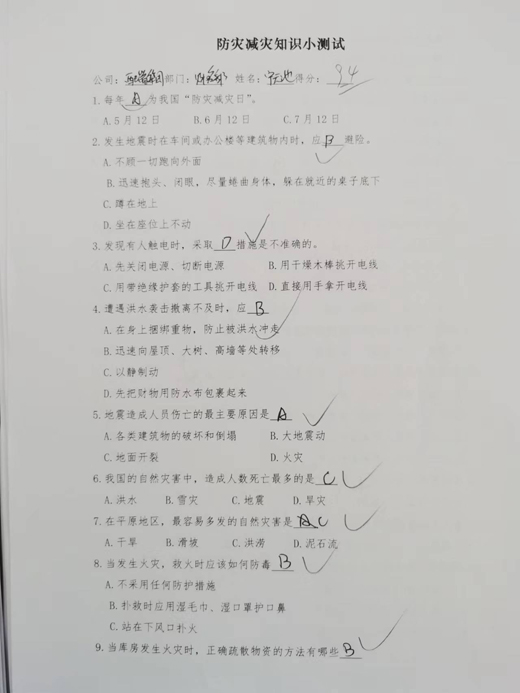 防灾减灾知识小测试
公司: 部门: 姓名: 得分: 94
1.每年 A 为我国“防灾减灾日”。
A.5月12日 B.6月12日 C.7月12日
2.发生地震时在车间或办公楼等建筑物内时，应 B 避险。
A.不顾一切跑向外面
B.迅速抱头、闭眼，尽量蜷曲身体，躲在就近的桌子底下
C.蹲在地上
D.坐在座位上不动
3.发现有人触电时，采取 D 措施是不准确的。
A.先关闭电源、切断电源 B.用干燥木棒挑开电线
C.用带绝缘护套的工具挑开电线 D.直接用手拿开电线
4.遭遇洪水袭击撤离不及时，应 B
A.在身上捆绑重物，防止被洪水冲走
B.迅速向屋顶、大树、高墙等处转移
C.以静制动
D.先把财物用防水布包裹起来
5.地震造成人员伤亡的最主要原因是 A
A.各类建筑物的破坏和倒塌 B.大地震动
C.地面开裂 D.火灾
6.我国的自然灾害中，造成人数死亡最多的是 C
A.洪水 B.雪灾 C.地震 D.旱灾
7.在平原地区，最容易多发的自然灾害是 C
A.干旱 B.滑坡 C.洪涝 D.泥石流
8.当发生火灾，救火时应该如何防毒 B
A.不采用任何防护措施
B.扑救时应用湿毛巾、湿口罩护口鼻
C.站在下风口扑火
9.当库房发生火灾时，正确疏散物资的方法有哪些 B